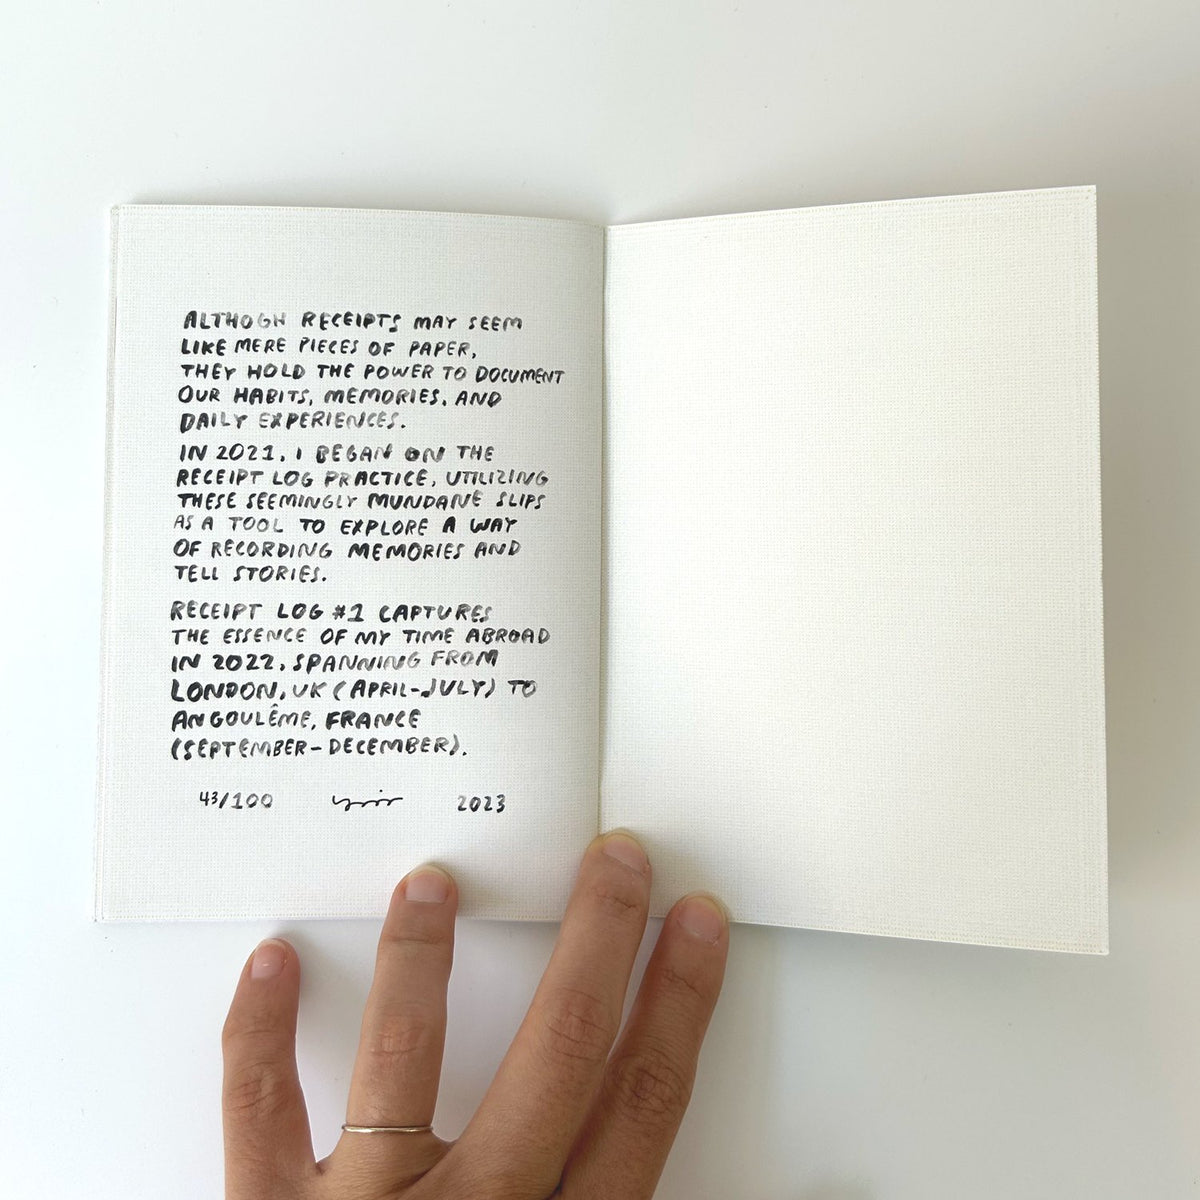 ALTHOGH RECEIPTS MAY SEEM
LIKE MERE PIECES OF PAPER,
THEY HOLD THE POWER TO DOCUMENT
OUR HABITS, MEMORIES, AND
DAILY EXPERIENCES.
IN 2021, I BEGAN ON THE
RECEIPT LOG PRACTICE, UTILIZING
THESE SEEMINGLY MUNDANE SLIPS
AS A TOOL TO EXPLORE A WAY
OF RECORDING MEMORIES AND
TELL STORIES.
RECEIPT LOG #1 CAPTURES
THE ESSENCE OF MY TIME ABROAD
IN 2022, SPANNING FROM
LONDON, UK (APRIL-JULY) TO
ANGOULÊME, FRANCE
(SEPTEMBER-DECEMBER).
43/100 2023